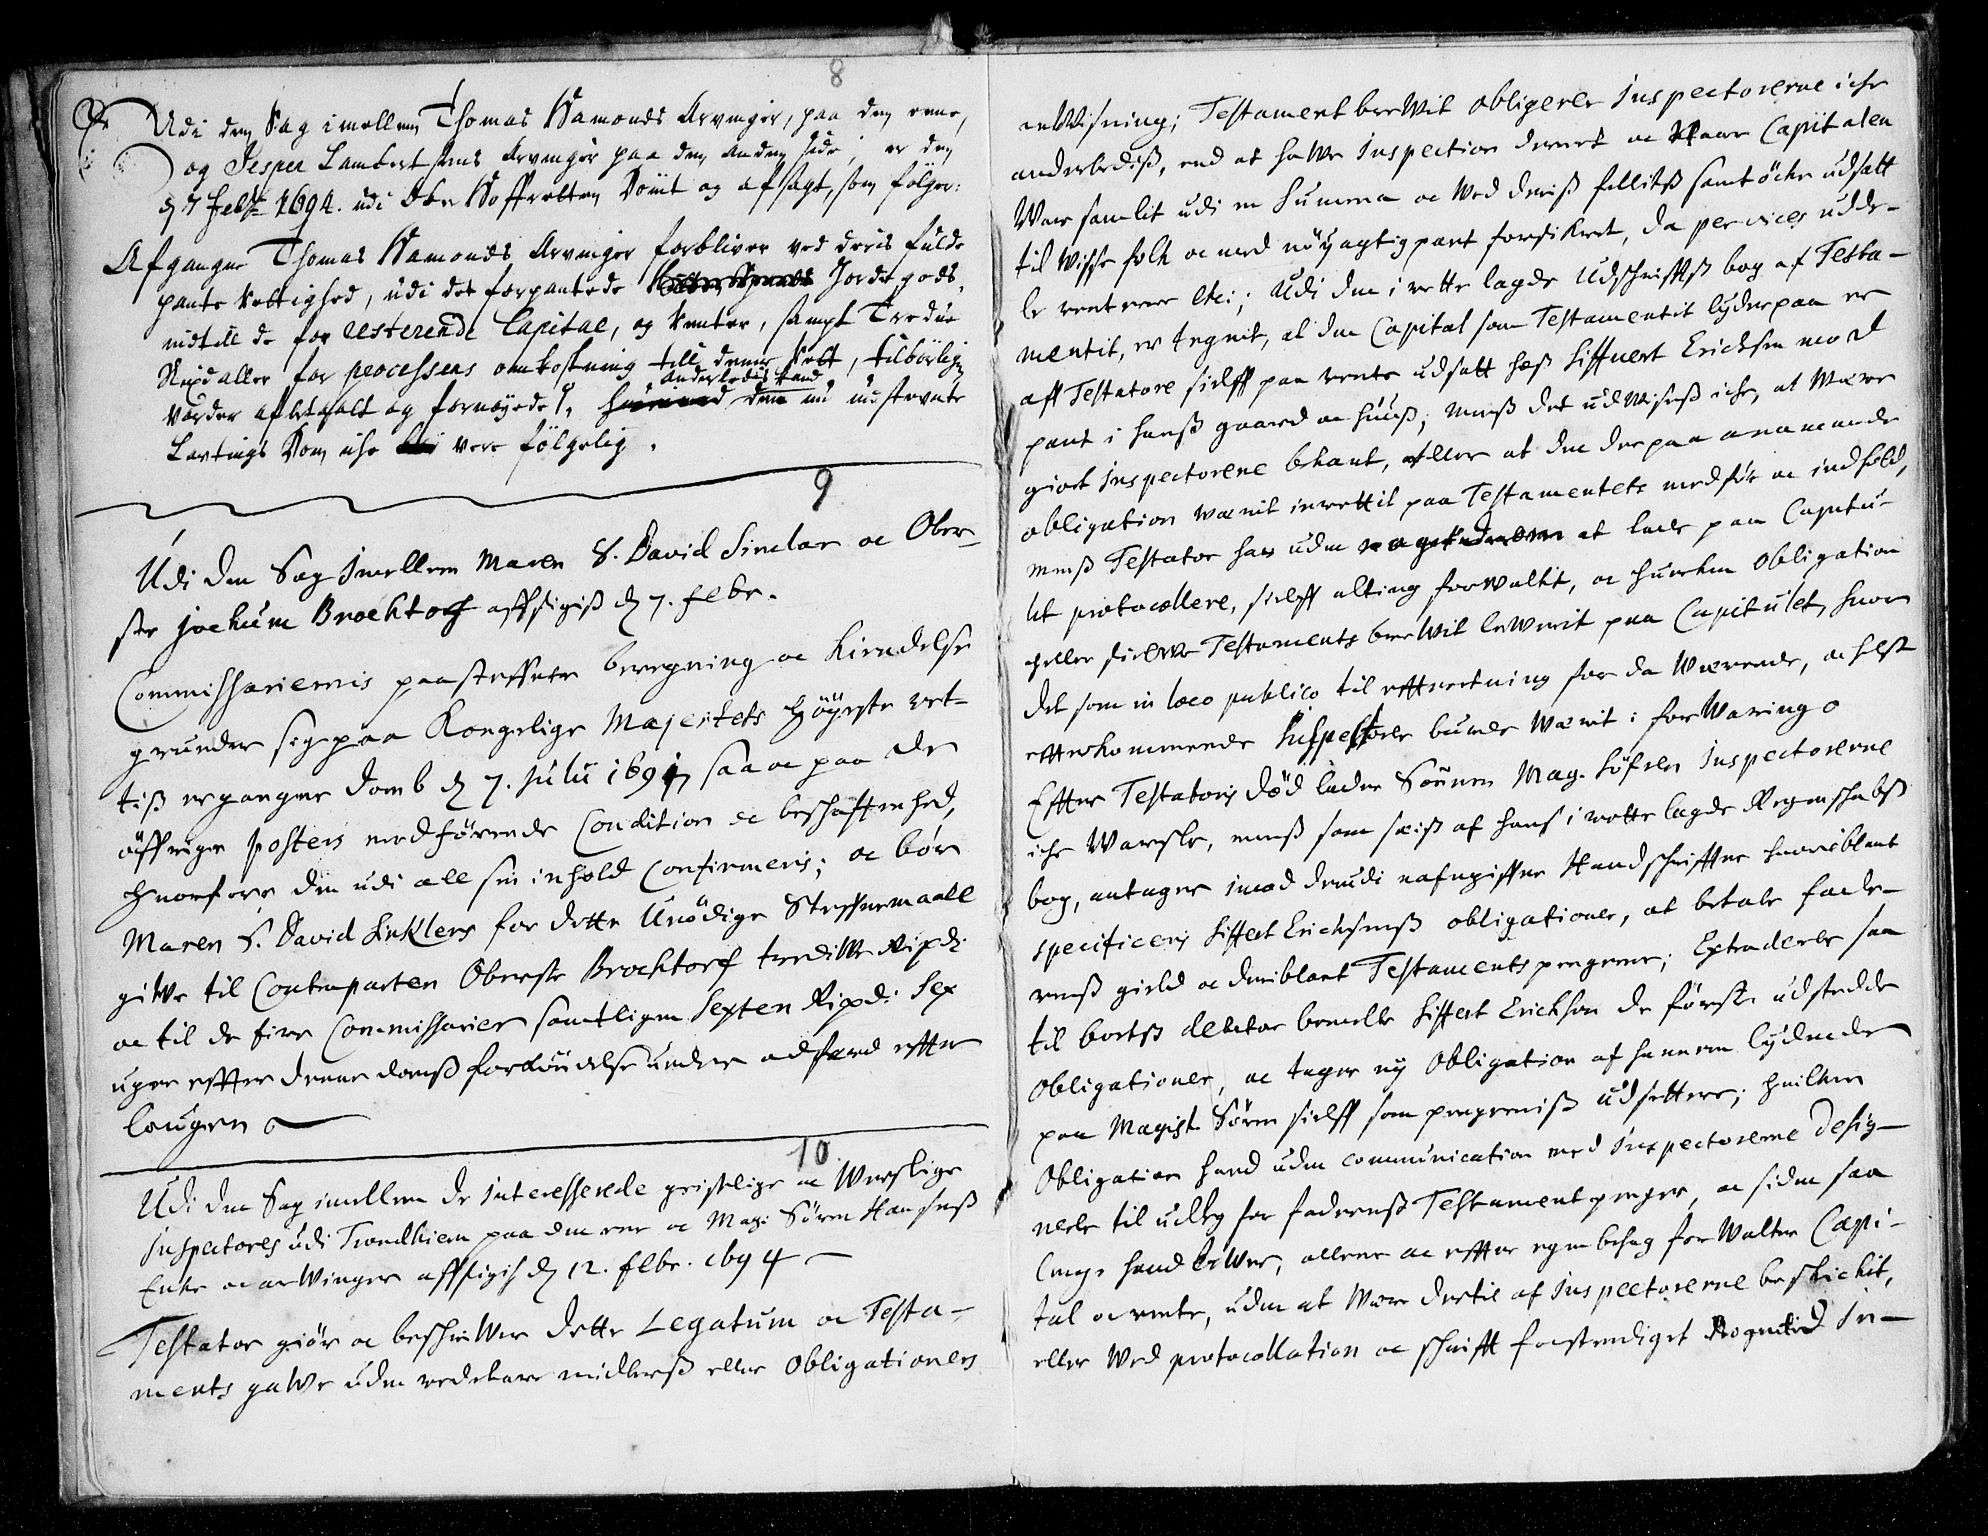 8
Udi den Sag imellem Thomas Hamonds Arvinger, paa den eene,
og Jesper Lambertsens Arvinger paa den anden side, er den
d 7 Febr 1694. udi Ober Hoffretten Dömt og afsagt, som følger:
Afgangne Thomas Hamonds Arvinger forbliver ved deris fulde
pante Rettighed, udi det forpantede Jorde gods,
indtill de for resterende Capital, og Renter, sampt Tredue
Rixdaller for processens omkostning till denne Rett, tilbörlig
vorder afbetalt og fornøyede. Anderledis kand den nu instevnte
Lavtings Dom iche vere følgelig.
9
Udi den Sag Imellem Maren S. David Sinclar oc Ober-
ste Jochum Brochtorf affsigiss d 7. Febr.
Commissariernis paasteffnte beregning oc Kiendelse
grunder sig paa Kongelige Majestets Höyeste ret-
tiss ergangne domb d 7. Julii 1691, saa oc paa de
öffrige posters medförende Condition oc beschaffenhed,
Hvorfore den udi all sin inhold Confirmeris; oc bör
Maren S. David Sinklers for dette Unödige Steffnemaall
giWe til Contraparten Oberste Brochtorf trediWe Rixdr
oc til de fire Commissarier samtligen Sexten Rixdr Sex
uger effter denne domss forkyndelse under adferd effter
laugen
10
Udi den Sag imellem de Interesserede geistlige oc Werslige
Inspectores udi Trondhiem paa den ene oc Mag: Sören Hansenss
Enke oc arWinger affsigis d 12. Febr. 1694
Testator giör oc beschriWer dette Legatum oc Testa-
ments gaWe uden redebare midlerss eller Obligationers
anWisning; Testament breWit obligerer Inspectorerne iche
anderlediss, end at haWe Inspection derved oc Naar Capitalen
Waar samlit udi en Summa oc Wed deriss fellitss samtöche udsatt
til Wisse folk oc med nöyagtig pant forsikret, da per vices udde-
le renterne etc; Udi den i rette lagde Udschrifftss bog af Testa-
mentit, er tegnit, at den Capital som Testamentit lyder paa er
aff Testatore sielff paa rente udsatt hoss Siffuert Ericksen mod
pant i hanss gaard oc huuss, menss det udWisess iche, at Wære
giort Inspectorene bekant, eller at den derpaa annammede
obligation wærit inrettit paa Testamentets medför oc indhold,
menss Testator har uden at lade paa Capitu-
let protocollere, sielff alting forwaltit, oc huercken Obligation
heller Testaments breWit leWerit paa Capitulet, huor
det som in loco publico til effterretning for da Wærende, oc helst
effterkommende Inspectorer burde Wærit i forWaring
Effter Testatoris död lader Sönnen Mag. Sören Inspectorerne
iche Warsle, menss som sees af hans i rette lagde Regenschabss
bog, antager imod derudi nafngiffne Handschriffter hvoriblant
specificeris Siffert Ericksenss obligationer, at betale fade-
renss gield oc deriblant Testaments pengene; Extraderer saa
til bortss debitor bemelte Siffert Erickson de förste udstedde
Obligationer, oc tager ny Obligation af hannem lydende
paa Magist. Sören sielff som pengeniss udsettere; hvilken
Obligation hand uden communication med Inspectorerne desig-
nerer til udleg for faderenss Testament penger, oc siden saa
lenge hand leWer, allene oc effter egen behag forWalter Capi-
tal oc rente, uden at Wære dertil af Inspectorerne beskickit,
eller Wed protocollation oc schrifft forstendiget Nogentid In-